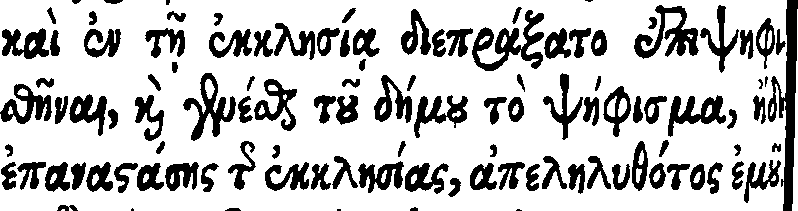 καὶ ἐν τῇ ἐκκλησίᾳ διεπράξατο ἐπιψηφι
σθῆναι, καὶ γενέσθαι τοῦ δήμου τὸ ψήφισμα, ἤδη
ἐπαναστάσης τῆς ἐκκλησίας, ἀπεληλυθότος ἐμοῦ.